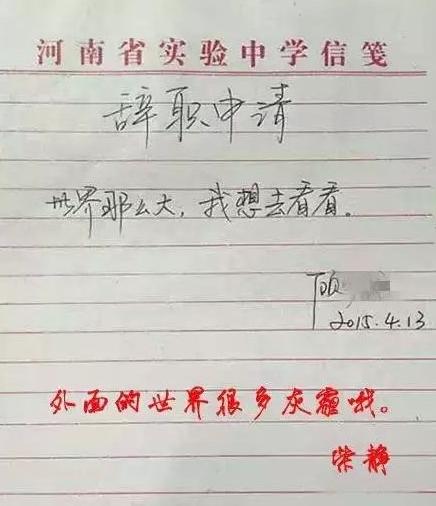 河南省实验中学信笺
辞职申请
世界那么大，我想去看看。
顾
2015.4.13
外面的世界很多灰霾哦。
柴静